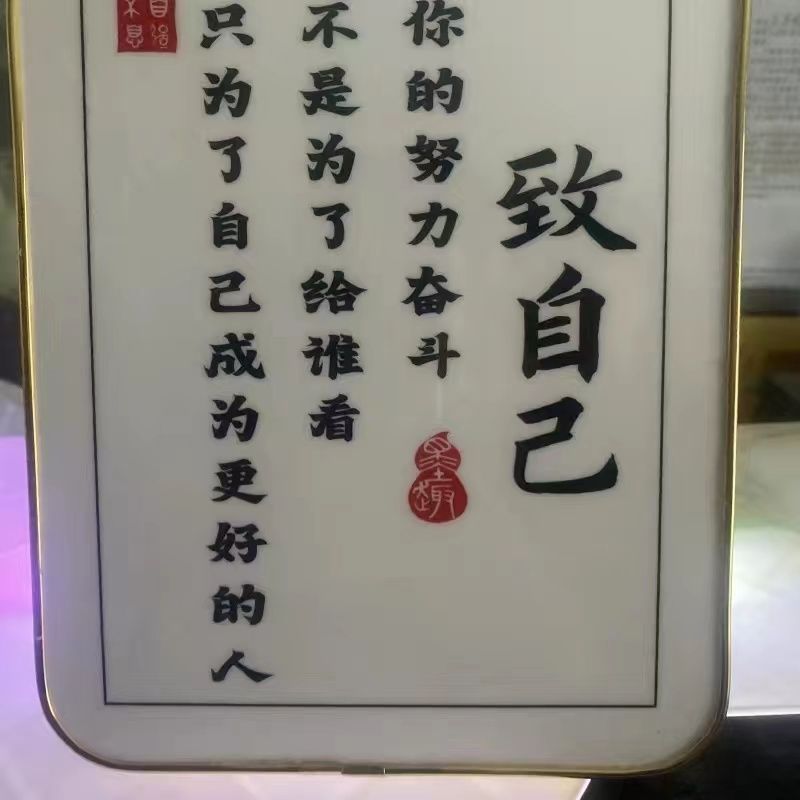 致自己
你的努力奋斗
墨趣
不是为了给谁看
只为了自己成为更好的人
自强不息